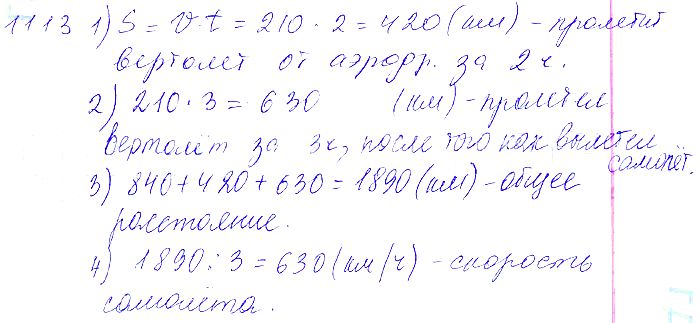 1113 1) S = v·t = 210 · 2 = 420 (км) - пролетит
вертолет от аэродр. за 2 ч.
2) 210 · 3 = 630 (км) - пролетел
вертолёт за 3ч, после того как вылетел
самолёт.
3) 840 + 420 + 630 = 1890 (км) - общее
расстояние.
4) 1890 : 3 = 630 (км/ч) - скорость
самолёта.